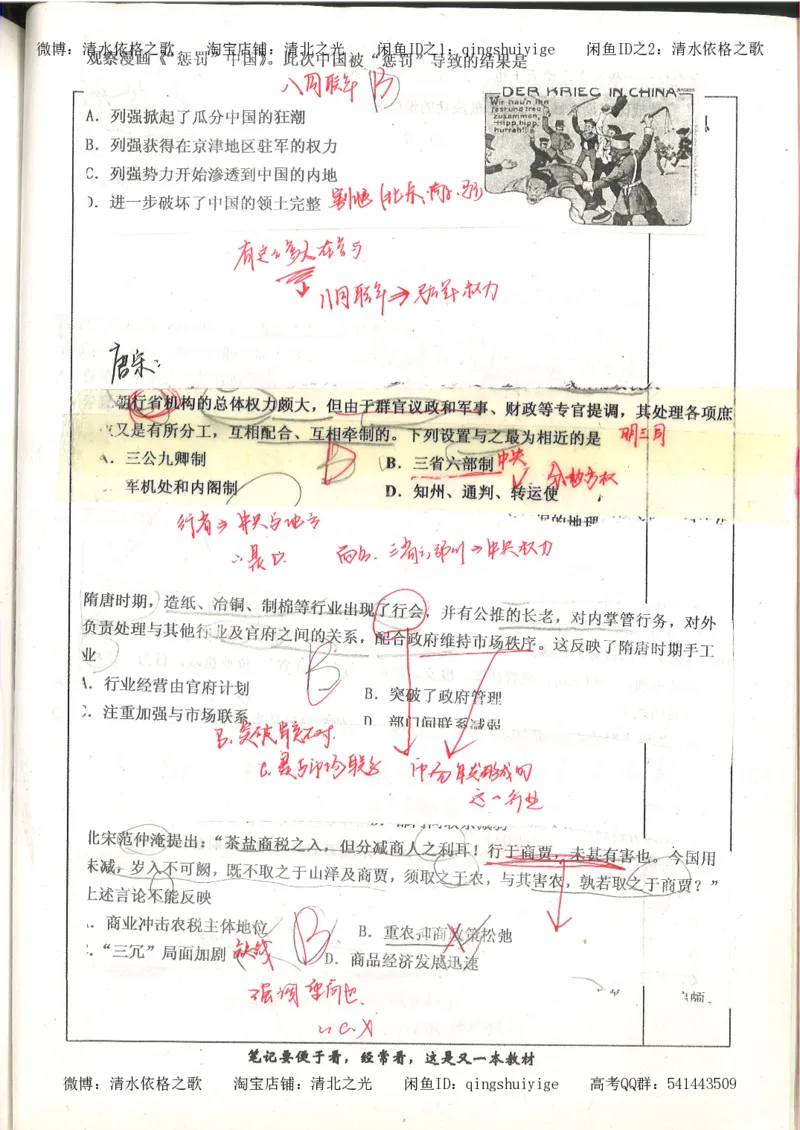 微博：清水依格之歌 淘宝店铺：清北之光 闲鱼ID之1：qingshuiyige 闲鱼ID之2：清水依格之歌
观察漫画《“惩罚”中国》。此次中国被“惩罚”导致的结果是
八国联军 B
DER KRIEG IN CHINA
Wir hau'n ihn
fest und treu
zusammen,
Hipp, hipp,
hurrah!
A. 列强掀起了瓜分中国的狂潮
B. 列强获得在京津地区驻军的权力
C. 列强势力开始渗透到中国的内地
D. 进一步破坏了中国的领土完整 割地
八国联军⇒ 驻军权力
唐宋：
朝行省机构的总体权力颇大，但由于群官议政和军事、财政等专官提调，其处理各项庶
又是有所分工，互相配合、互相牵制的。下列设置与之最为相近的是 明三司
A. 三公九卿制 D B. 三省六部制 中央
军机处和内阁制 D. 知州、通判、转运使 分割事权
行省⇒ 中央与地方
∴最D. 而B. 三省六部制→中央权力
隋唐时期，造纸、冶铜、制棉等行业出现了行会，并有公推的长老，对内掌管行务，对外
负责处理与其他行业及官府之间的关系，配合政府维持市场秩序。这反映了隋唐时期手工
业
A. 行业经营由官府计划 B. 突破了政府管理
C. 注重加强与市场联系 D. 部门间联系减弱
B. 突破 不对.
这一行业
北宋范仲淹提出：“茶盐商税之入，但分减商人之利耳！行于商贾，未甚有害也。今国用
未减，岁入不可阙，既不取之于山泽及商贾，须取之于农，与其害农，孰若取之于商贾？”
上述言论不能反映
A. 商业冲击农税主体地位 B B. 重农抑商政策松弛
C. “三冗”局面加剧 D. 商品经济发展迅速
强调
笔记要便于看，经常看，这是又一本教材
微博：清水依格之歌 淘宝店铺：清北之光 闲鱼ID：qingshuiyige 高考QQ群：541443509